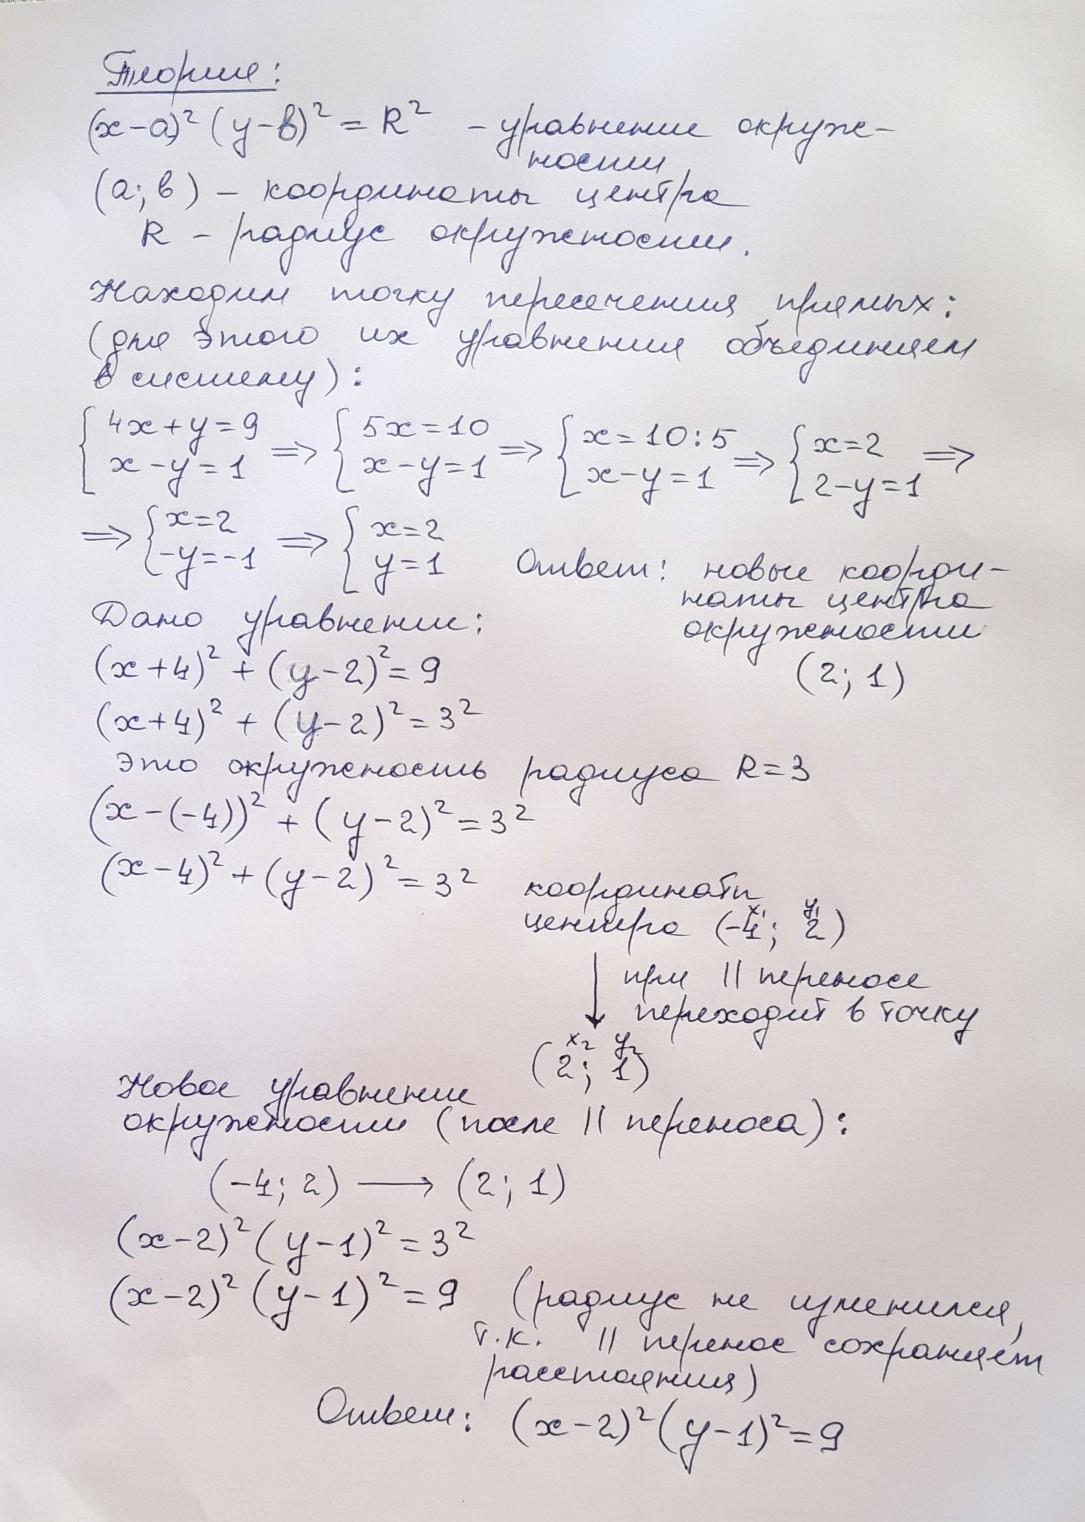 Теория:
(x-a)² (y-в)² = R² - уравнение окруж-
ности
(a; в) - координаты центра
R - радиус окружности.
Находим точку пересечения прямых:
(для этого их уравнения объединяем
в систему):
{4x+y=9 ⇒ {5x=10 ⇒ {x=10:5 ⇒ {x=2 ⇒
{x-y=1 {x-y=1 {x-y=1 {2-y=1
⇒ {x=2 ⇒ {x=2
{-y=-1 {y=1
Ответ: новые коорди-
наты центра
окружности
(2; 1)
Дано уравнение:
(x+4)² + (y-2)² = 9
(x+4)² + (y-2)² = 3²
Это окружность радиуса R=3
(x-(-4))² + (y-2)² = 3²
(x-4)² + (y-2)² = 3²
координаты
центра (-4; 2)
x₁ y₁
при || переносе
переходит в точку
x₂ y₂
(2; 1)
Новое уравнение
окружности (после || переноса):
(-4; 2) → (2; 1)
(x-2)² (y-1)² = 3²
(x-2)² (y-1)² = 9 (радиус не изменился,
т.к. || перенос сохраняет
расстояния)
Ответ: (x-2)² (y-1)² = 9